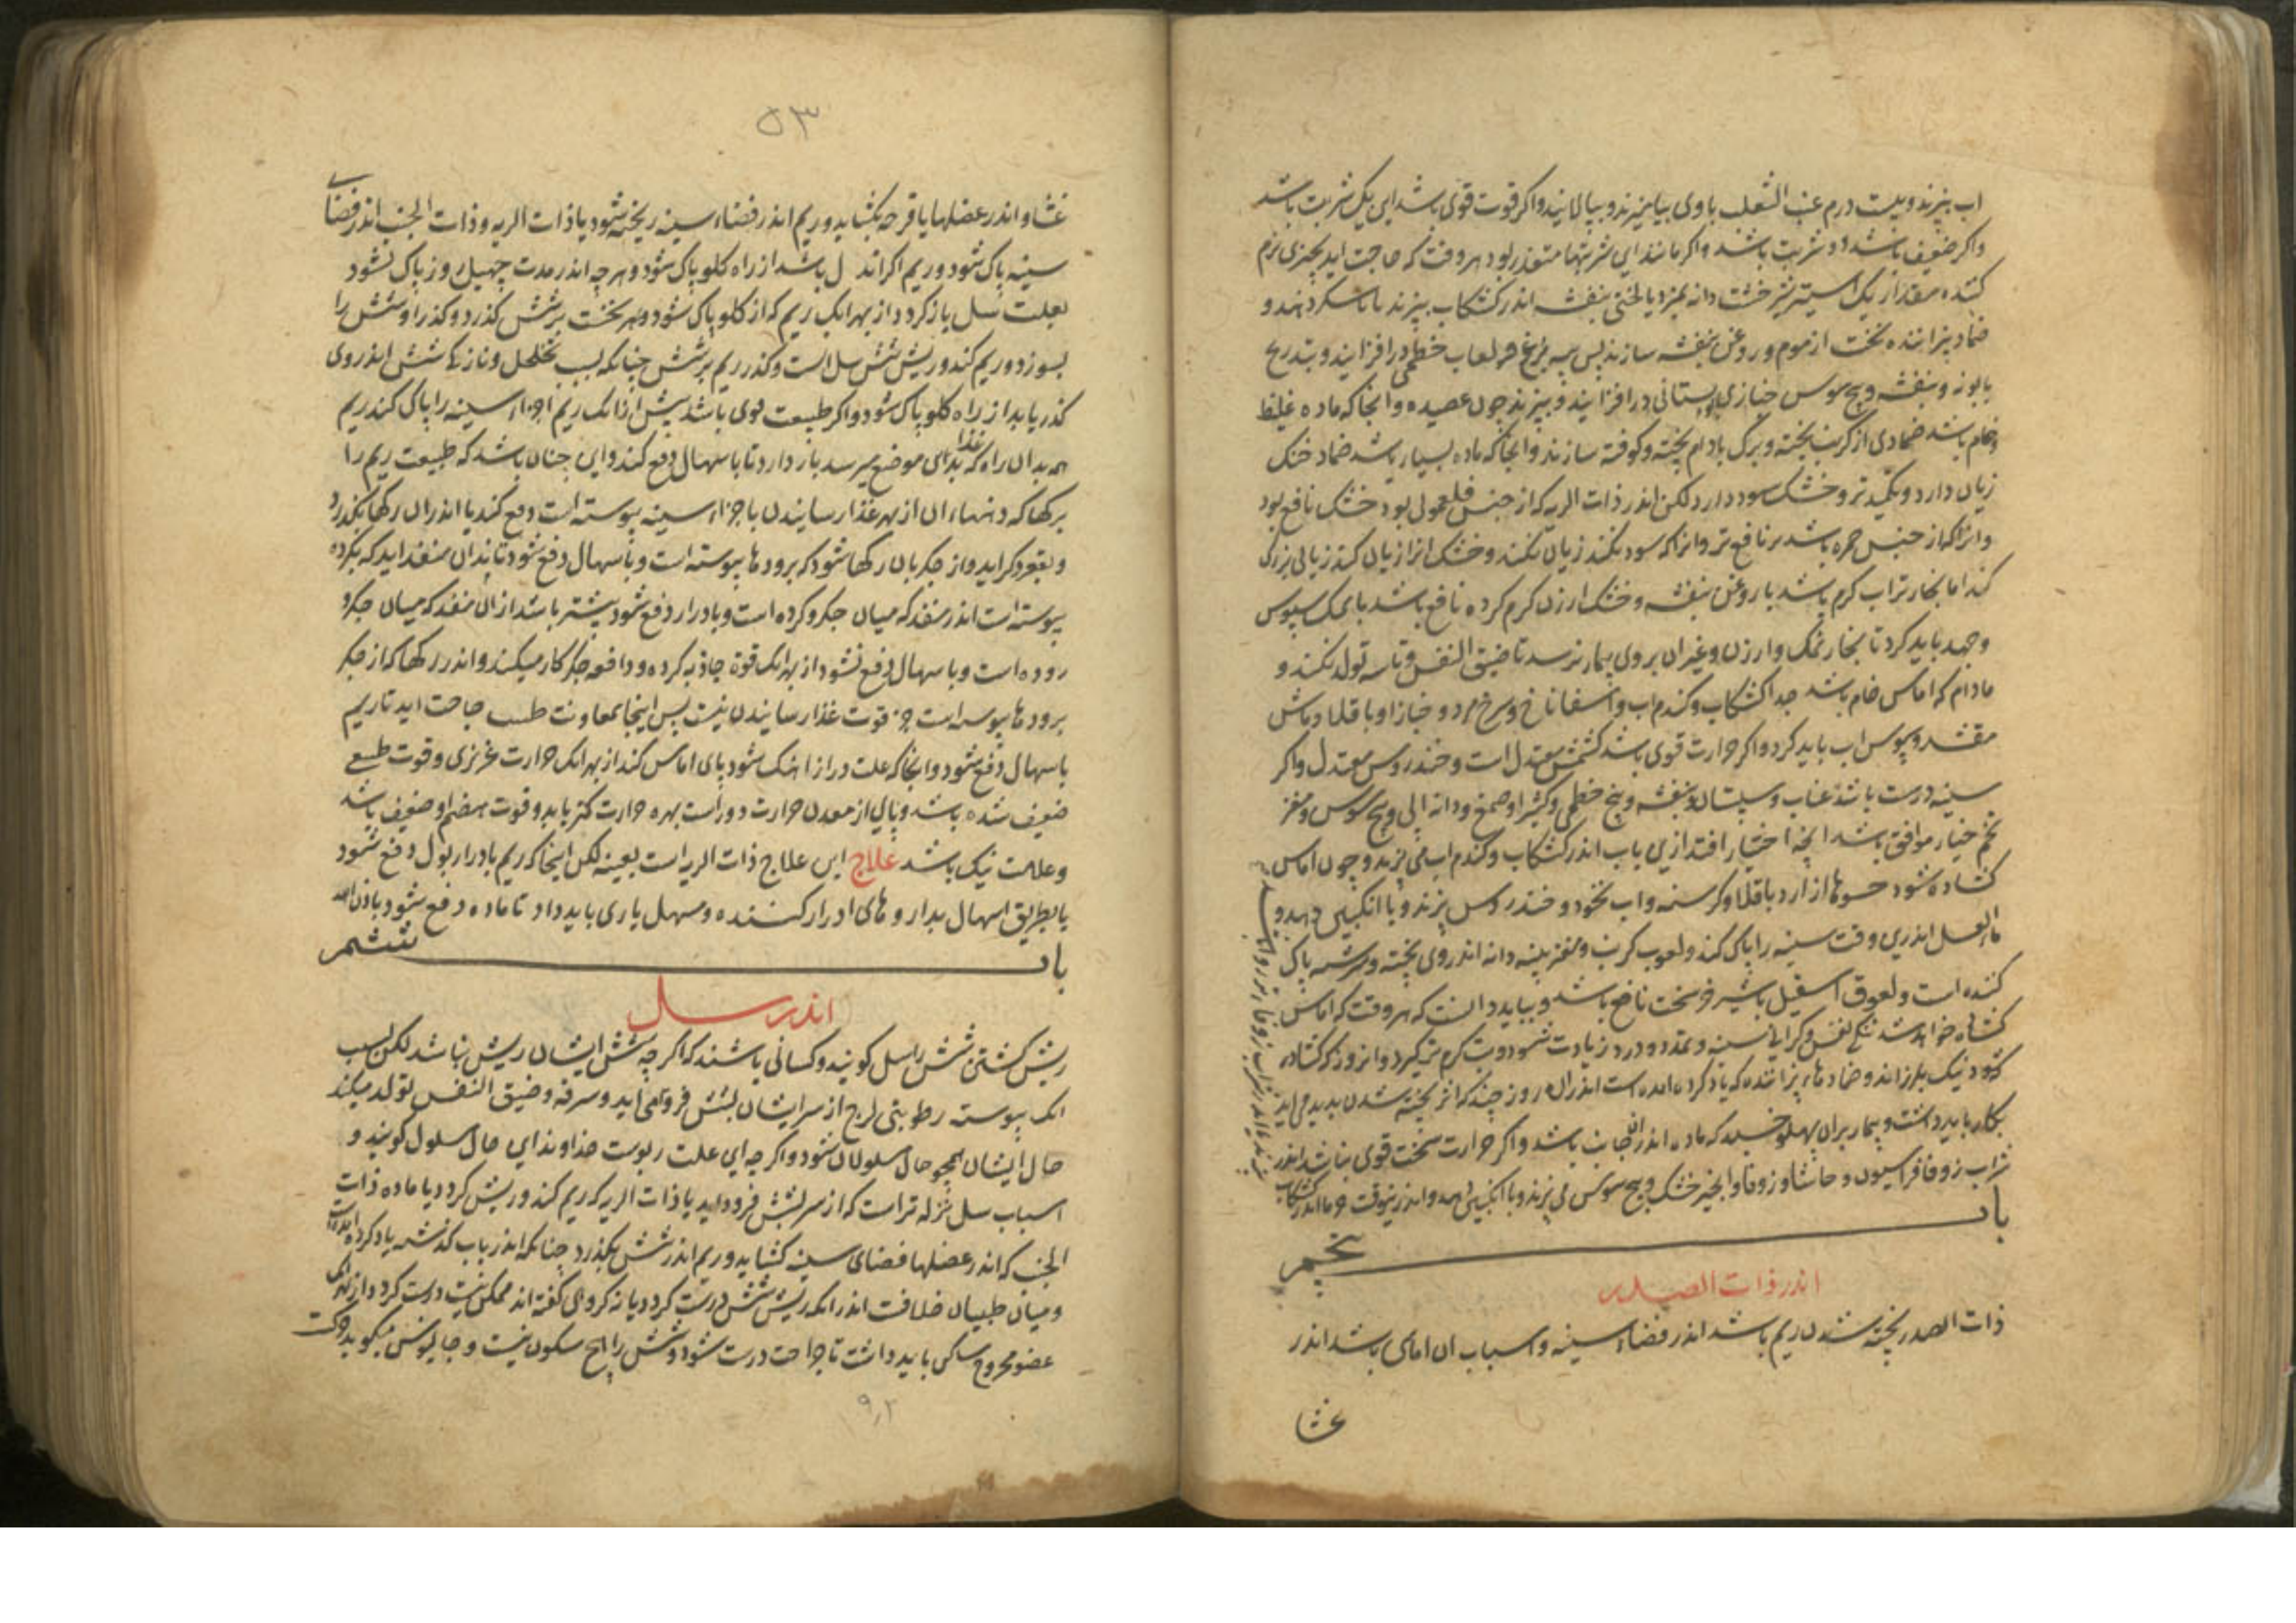 اب بپزند و بیست درم عنب الثعلب با وی بیامیزند و بپالایند و اکر قوت قوی باشد این یک شربت باشد
واکر ضعیف باشد دو شربت باشد واکر مانند این شربتها متعذر بود هر وقت که حاجت اید بچیزی نرم
کننده مقدار یک استیر شیرخشت دانه بمزد یا لختی بنفشه اندر کشکاب بپزند با شکر دهند و
ضماد پزاننده نخست از موم و روغن بنفشه سازند پس پیه مرغ و لعاب خطمی درافزایند و بتدریج
بابونه و بنفشه و بیخ سوس خبازی بستانی درافزایند و بپزند چون عصیده وانجا که ماده غلیظ
وخام باشد ضمادی از کرنب پخته و برگ بادام پخته و کوفته سازند وانجا که ماده بسیار باشد ضماد خنک
زیان دارد و تکمید تر و خشک سود دارد لکن اندر ذات الریه که از جنس فلغمونی بود خشک نافع بود
وانرا که از جنس حمره باشد تر نافع تر وانرا که سود نکند زیان نکند و خشک انرا زیان کند زیانی بزرک
کند اما بخار تر اب کرم باشد با روغن بنفشه و خشک ارزن کرم کرده نافع باشد با نمک سپوس
وجهد باید کرد تا بخار نمک وارزن و غیر ان بروی بیمار نرسد تا ضیق النفس و تاسه تولد نکند و
مادام که اماس خام باشد جدا کشکاب و کندم اب و اسفاناخ و سرخ مرد و خبازا و باقلا و ماش
مقشر و سپوس اب باید کرد واکر حرارت قوی باشد کشمش معتدل است و خندروس معتدل واکر
سینه درست باشد عناب و سپستان و بنفشه و بیخ خطمی و کثیرا و صمغ و دانه ابی و بیخ سوس و مغز
تخم خیار موافق باشد انچه اختیار افتد ازین باب اندر کشکاب و کندم اب می پزند و چون اماس
کشاده شود حسوها از ارد باقلا و کرسنه و اب نخود و خندروس بپزند و با انکبین دهند و
ماء العسل اندرین وقت سینه را پاک کند و لعوب کرنب و مغز پنبه دانه اندر وی پخته و سرشته پاک
کننده است و لعوق اسقیل باشیر خر سخت نافع باشد و بباید دانست که هر وقت که اماس
کشاده خواهد شد تنکی نفس و کرانی سینه و تمدد و درد زیادت شود و تب کرم تر کیرد و انروز که کشاده
شود نیک بلرزاند و ضمادهای پزاننده که یاد کرده امده است اندران روز چند که اثر پخته شدن پدید می اید
بکار باید داشت و بیمار بران پهلو خسبد که ماده اندران جانب باشد واکر حرارت سخت قوی نباشد اندر
شراب زوفا فراسیون و حاشا و زوفا و انجیر خشک و بیخ سوس می پزند و با انکبین دهند و اندرین وقت خرما اندر کشکاب
باب پنجم
اندر ذات الصدر
ذات الصدر پخته شدن ریم باشد اندر فضاء سینه و اسباب ان اماسی باشد اندر
غشا
۵۳
غشا و اندر عضلها یا قرحه بکشاید و ریم اندر فضاء سینه ریخته شود یا ذات الریه و ذات الجنب اندر فضای
سینه پاک شود و ریم اکر اندک باشد از راه کلو پاک شود و هر چه اندر مدت چهل روز پاک نشود
بعلت سل باز کردد از بهر انک ریم که از کلو پاک شود و بهر نخست بر شش کذرد و کذر او شش را
بسوزد و ریم کند و ریش شش سل است و کذر ریم بر شش چنانکه بسبب تخلخل و نازکی شش اندر وی
کذر یابد از راه کلو پاک شود واکر طبیعت قوی باشد پیش از انک ریم اجزاء سینه را پاک کند ریم
هم بدان راه که غذا بدای موضع میرسد باز دارد تا با سهال دفع کند و این چنان باشد که طبیعت ریم را
برکها که دهنهاء ان از بهر غذا رسانیدن باجزاء سینه پیوسته است دفع کند یا اندران رکها بکذرد
وبقعر جکر اید و از جکر بان رکها شود که برودها پیوسته است و باسهال دفع شود تا بدان منفذ اید که بکرده
پیوسته است اندر منفذ که میان جکر و کرده است و بادرار دفع شود بیشتر باشد از ان منفذ که میان جکر و
روده است و باسهال دفع نشود از بهر انک قوة جاذبه کرده و دافعه جکر کار میکند و اندر رکها که از جکر
برودها پیوسته است جز قوت غذا رسانیدن نیست پس اینجا بمعاونت طبیب حاجت اید تا ریم
باسهال دفع شود و انجا که علت دراز اهنک شود پای اماس کند از بهر انک حرارت غریزی و قوت طبیعی
ضعیف شده باشد و پای از معدن حرارت دور است بهره حرارت کمتر یابد و قوت هضم او ضعیف باشد
وعلامت نیک باشد علاج این علاج ذات الریه است بعینه لکن اینجا که ریم بادرار بول دفع شود
یا بطریق اسهال بدارو های ادرار کننده و مسهل یاری باید داد تا ماده دفع شود باذن الله
باب ششم
اندر سل
ریش کشتن شش را سل کویند و کسانی باشند که اکر چه شش ایشان ریش نباشد لکن بسبب
انک پیوسته رطوبتی لزج از سر ایشان بشش فرو همی اید و سرفه و ضیق النفس تولد میکند
حال ایشان همچو حال مسلولان شود و اکر چه این علت ربوست خداوند این حال مسلول کویند و
اسباب سل نزله تر است که از سر بشش فرود اید یا ذات الریه که ریم کند و ریش کردد یا ماده ذات
الجنب که اندر عضلها فضای سینه کشاید و ریم اندر شش بکذرد چنانکه اندر باب کذشته یاد کرده امده است
ومیان طبیبان خلافست اندر انکه ریش شش درست کردد یا نه کروهی کفته اند ممکن نیست درست کردد از بهر انک
عضو مجروح ساکن باید داشت تا جراحت درست شود و شش را هیچ سکون نیست و جالینوس میکوید حرکت